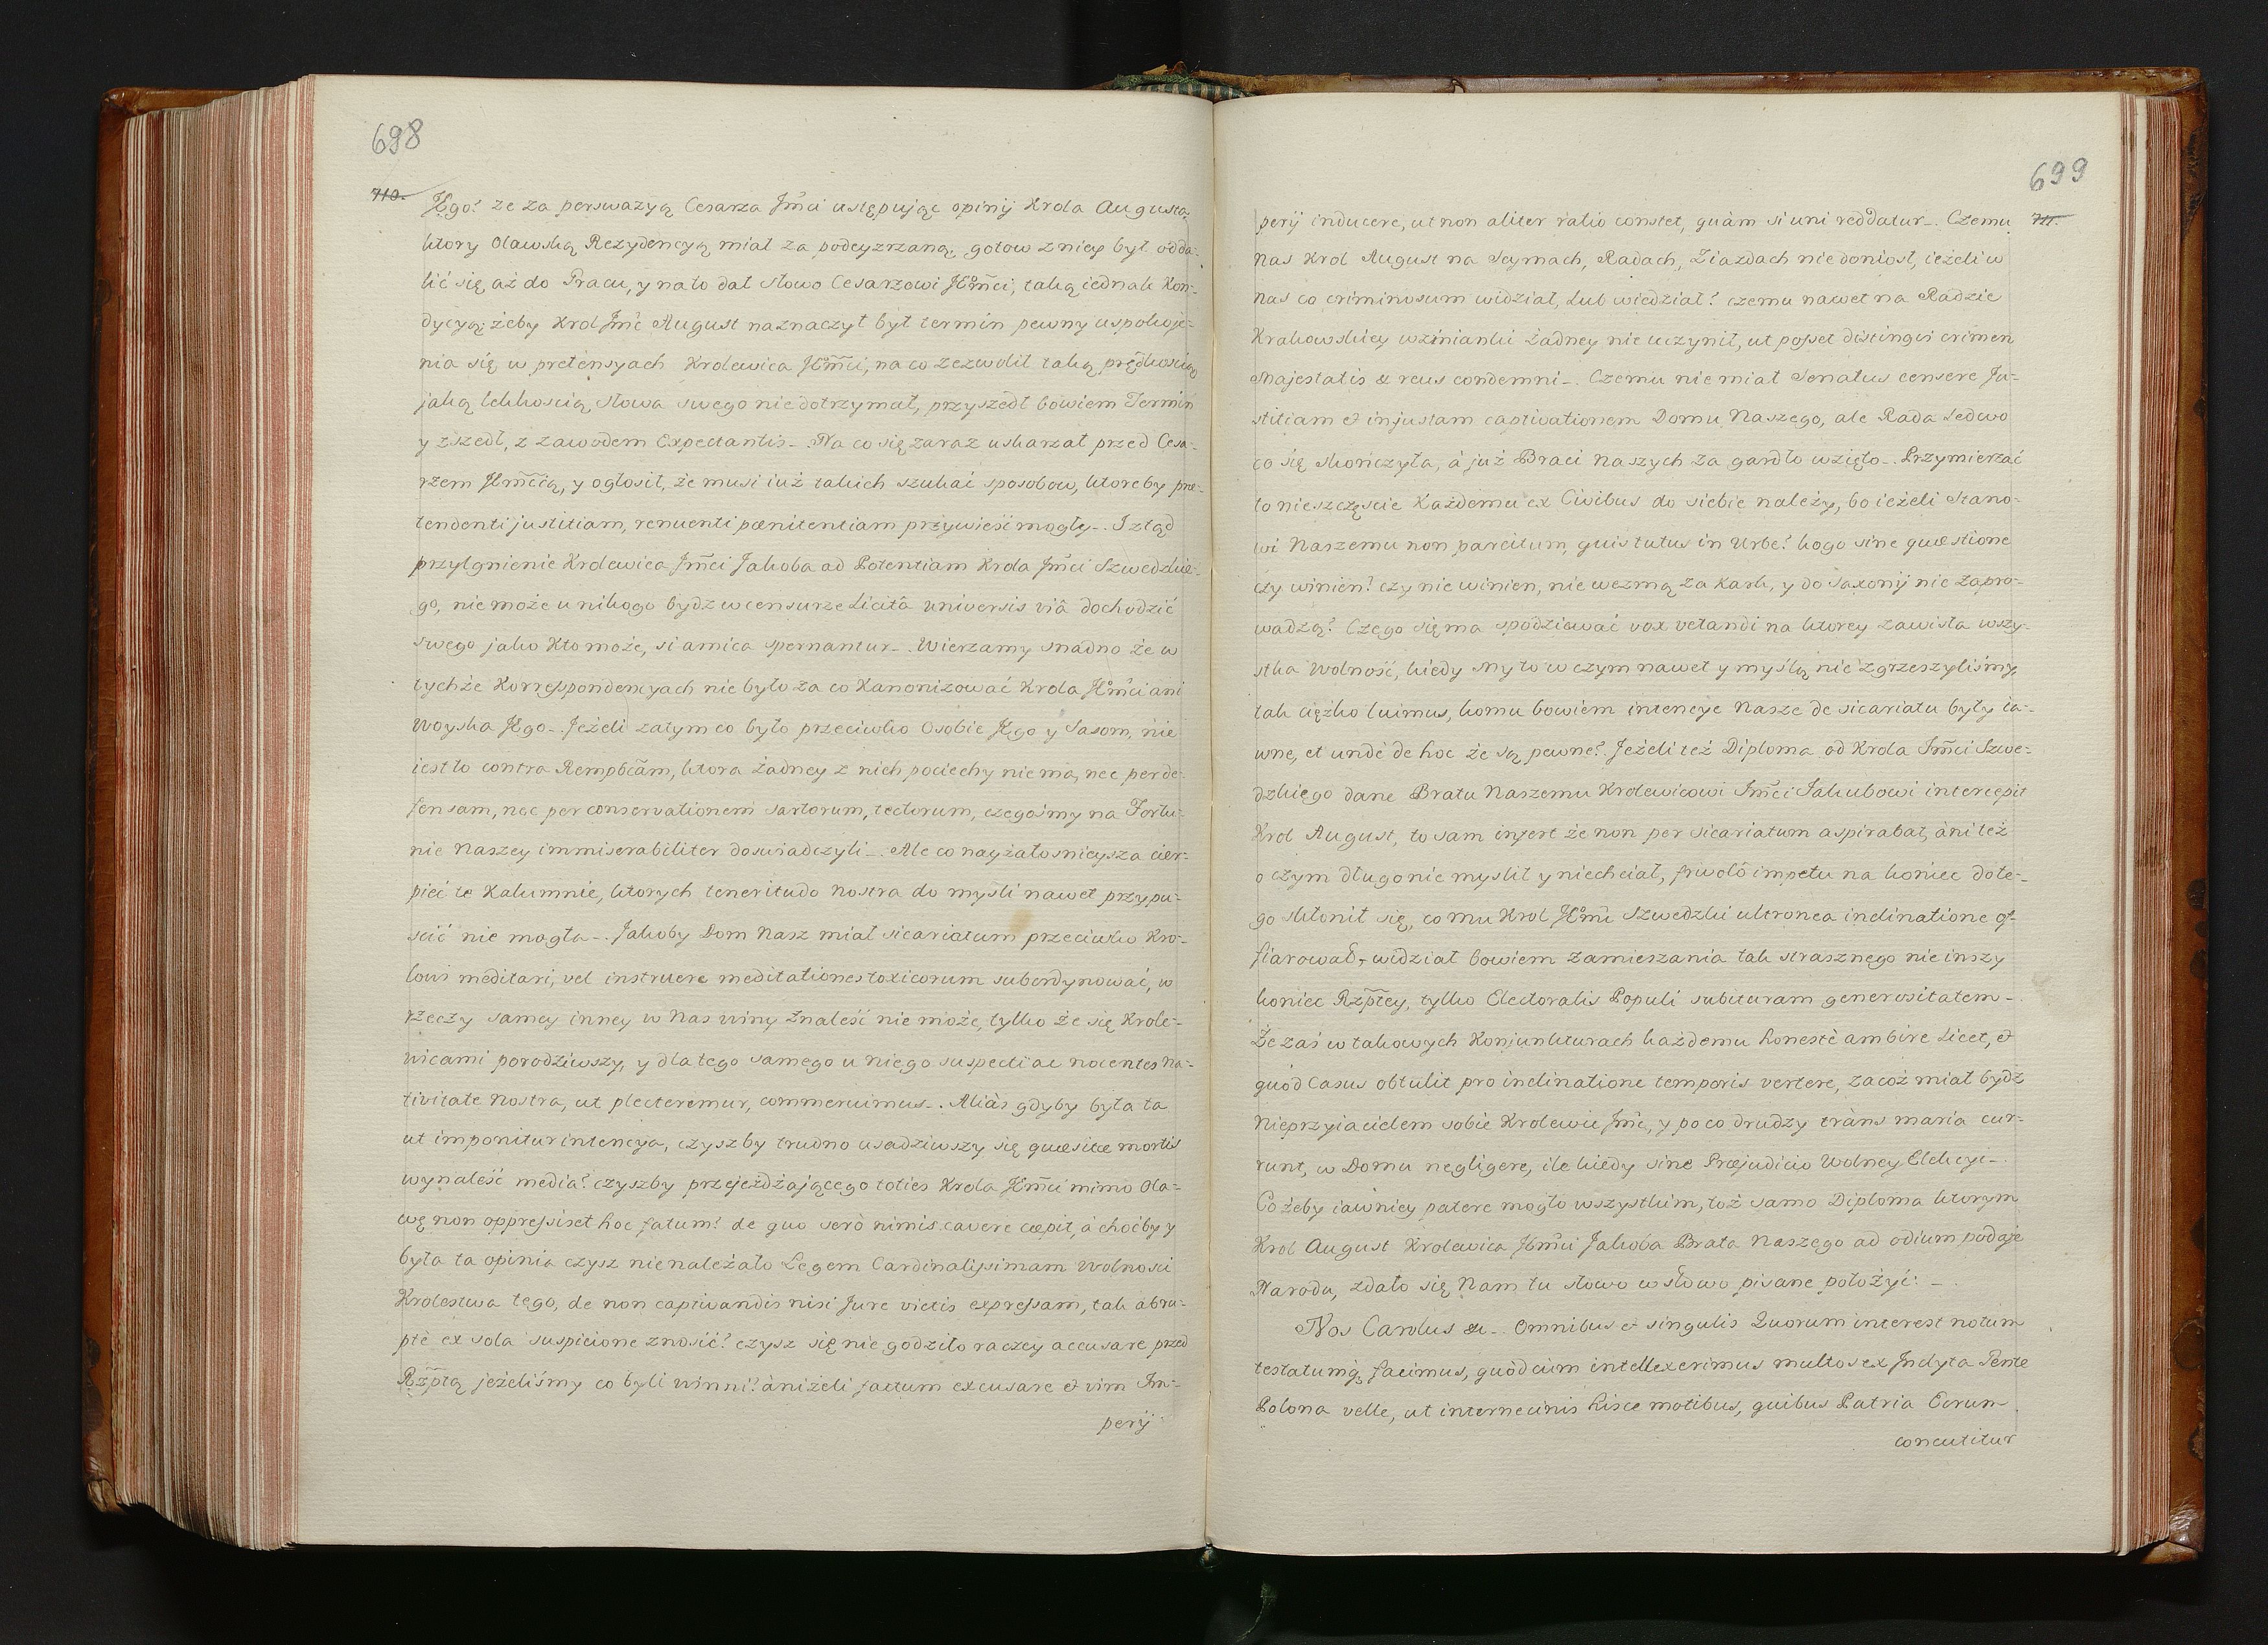 698
710.
JKgo? że za perswazyą Cesarza Jmci ustępując opinij Krola Augusta,
ktory Oławską Rezydencyą miał za podeyzrzaną, gotow z niey był odda-
lić się aż do Pracu, y na to dał słowo Cesarzowi JKmci, taką iednak Kon-
dycyą: żeby Krol Jmc August naznaczył był termin pewny uspokoje-
nia się w pretensyach Krolewica JKmci, na co zezwolił taką prędkością
jaką lekkością słowa swego nie dotrzymał, przyszedł bowiem Termin
y zszedł, z zawodem Expectantis. Na co się zaraz uskarżał przed Cesa-
rzem JKmcią, y ogłosił, że musi iuż takich szukać sposobow, ktoreby præ-
tendenti justitiam, renuenti pœnitentiam przywieść mogły. I ztąd
przylgnienie Krolewica Jmci Jakoba ad Potentiam Krola Jmci Szwedzkie-
go, nie może u nikogo bydz w censurze Licitâ universis viâ dochodzić
swego jako Kto może, si amica spernantur. Wierzamy snadno że w
tychże Korrespondencyach nie było za co Kanonizować Krola JKmci ani
Woyska JKgo. Jeżeli zatym co było przeciwko Osobie JKgo y Sasom, nie
iest to contra Rempbcam, ktora żadney z nich pociechy nie ma, nec per de-
fensam, nec per conservationem sartorum, tectorum, czegośmy na Fortu-
nie Naszey immiserabiliter doswiadczyli. Ale co nayżałosnieysza cier-
pieć te Kalumnie, ktorych teneritudo nostra do myśli nawet przypu-
scić nie mogła. Jakoby Dom Nasz miał sicariatum przeciwko Kro-
lowi meditari, vel instruere meditationes toxicorum subordynować, w
rzeczy samey inney w Nas winy znaleść nie może, tylko że się Krole-
wicami porodziwszy, y dla tego samego u niego suspecti ac nocentes Na-
tivitate Nostra, ut plecteremur, commeruimus. Aliàs gdyby była ta
ut imponitur intencya, czyszby trudno usadziwszy się quæsitæ mortis
wynaleść media? czyszby przejeżdżającego toties Krola JKmci mimo Oła-
wę non oppressiset hoc fatum? de quo serò nimis cavere cœpit, à choćby y
była ta opinia czysz nie należało Legem Cardinalissimam Wolnosci
Krolestwa tego, de non captivandis nisi Jure victis expressam, tak abru-
ptè ex sola suspicione znosić? czysz się nie godziło raczey accusare przed
Rzptą jeżeliśmy co byli winni? àniżeli factum excusare et vim Im-
perij
699
711.
perij inducere, ut non aliter ratio constet, quàm si uni reddatur. Czemu
Nas Krol August na Seymach, Radach, Ziazdach nie doniosł, ieżeli w
Nas co criminosum widział, Lub wiedział? czemu nawet na Radzie
Krakowskiey wzmianki żadney nie uczynił, ut posset distingvi crimen
Majestatis & reus condemni. Czemu nie miał Senatus censere Ju-
stitiam et injustam captivationem Domu Naszego, ale Rada Ledwo
co się skończyła, à już Braci Naszych za gardło wzięto. Przymierzać
to nieszczęscie Każdemu ex Civibus do siebie należy, bo ieżeli Stano-
wi Naszemu non parcitum, quis tutus in Urbe? kogo sine quæstione
czy winien? czy nie winien, nie wezmą za Kark, y do Saxonij nie zapro-
wadzą? Czego się ma spodziewać vox vetandi na ktorey zawisła wszy-
stka Wolność, kiedy My to w czym nawet y myślą nie zgrzeszyliśmy,
tak ciężko luimus, komu bowiem intencye Nasze de sicariatu były ia-
wne, et undè de hoc że są pewne? Jeżeli też Diploma od Krola Jmci Szwe-
dzkiego dane Bratu Naszemu Krolewicowi Jmci Jakubowi intercepit
Krol August, to sam infert że non per sicariatum aspirabat, àni też
o czym długo nie myslił y niechciał, frivolô impetu na koniec do te-
go skłonił się, co mu Krol JKmc Szwedzki ultronea inclinatione of-
fiarował, widział bowiem zamieszania tak strasznego nie inszy
koniec Rzptey, tylko Electoralis Populi subituram generositatem.
Że zaś w takowych Konjunkturach każdemu honestè ambire Licet, et
quòd Casus obtulit pro inclinatione temporis vertere, za coż miał bydz
Nieprzyiacielem sobie Krolewic Jmc, y po co drudzy tràns maria cur-
runt, w Domu negligere, ile kiedy sine Præjudicio Wolney Elekcyi.
Co żeby iawniey patere mogło wszystkim, toż samo Diploma ktorym
Krol August Krolewica JKmci Jakoba Brata Naszego ad odium podaje
Narodu, zdało się Nam tu słowo w słowo pisane położyć:
Nos Carolus &c. Omnibus et singulis Quorum interest notum
testatumq, facimus, quòd cùm intellexerimus multos ex Jnclyta Gente
Polona velle, ut internecinis hisce motibus, quibus Patria Eorum
concutitur